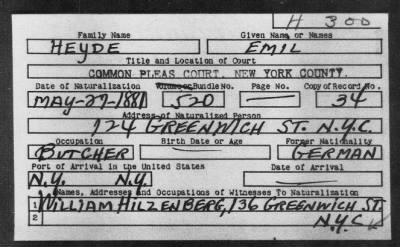 H 300
Family Name Given Name or Names
HEYDE EMIL
Title and Location of Court
COMMON PLEAS COURT, NEW YORK COUNTY.
Date of Naturalization Volume or Bundle No. Page No. Copy of Record No.
MAY-27-1881 520 — 34
Address of Naturalized Person
724 GREENWICH ST. N.Y.C.
Occupation Birth Date or Age Former Nationality
BUTCHER — GERMAN
Port of Arrival in the United States Date of Arrival
N.Y. N.Y. —
Names, Addresses and Occupations of Witnesses To Naturalization
1 WILLIAM HILZENBERG, 136 GREENWICH ST.
2 N.Y.C.